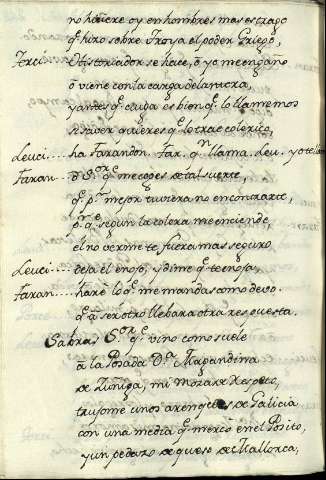 no hauere oy en hombres mas estrago
q̃ hizo sobre Troya el poder Griego,
Terci.... se hace, ò yo me engaño
ò viene con la carga delantera,
y antes q̃ cayga es bien q̃ lo llamemos
si saver quieres q̃ lo trae colerico,
Leuci.... ha Farandon. Far. qn llama. Leu. yo te llamo
Faran... ò Sor q̃ me coges de tal suerte,
q̃ pr mejor tuviera no encontrarte,
pr q̃ segun la colera me enciende,
el no verme te fuera mas seguro
Leuci.... deja el enojo, y dime q̃ te enoja,
Faran.... harè lo q̃ me manda como devo.
q̃ à ser otro llebara otra respuesta.
Sabras Sor q̃ vino como suele
à la Posada Da Magandina
de Zuñiga, mi moza de respeto,
trujome unos arenques de Galicia
con una media q̃ merco en el Posito,
y un pedazo de queso de Mallorca,